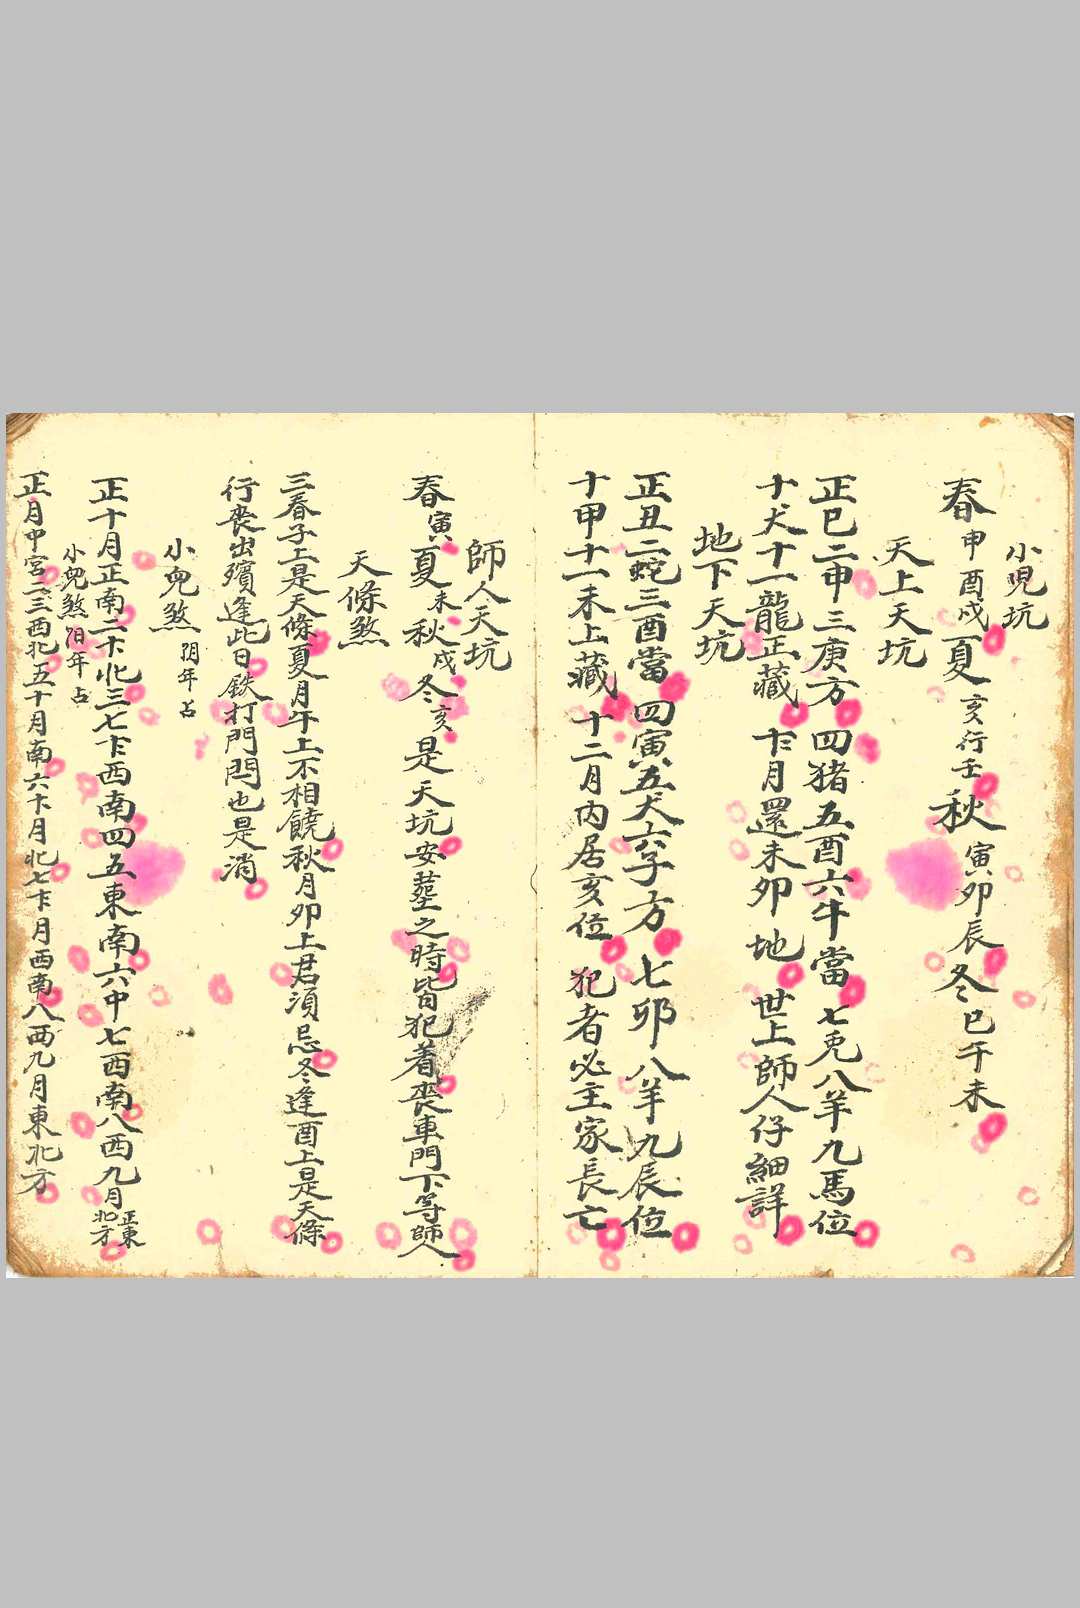 小児坑
春甲酉戍夏亥行壬秋寅卯辰冬巳午未
天上天坑
正巳二申三庚方四猪五酉六牛當七兎八羊九馬位
十犬十一龍正藏十二月還未卯地世上師人仔細詳
地下天坑
正丑二蛇三酉當四寅五犬六子方七卯八羊九辰位
十甲十一未上藏十二月内居亥位犯者必主家長亡
師人天坑
春寅夏未秋戍冬亥是天坑安塟之時皆犯着喪車門下等師人
天條煞
三春子上是天條夏月午上不相饒秋月卯上君須忌冬逢酉上是天條
行喪出殯逢此日鉄打門閂也是消
小兒煞阴年占
正十月正南二十北三七十二西南四五東南六中七西南八西九月正東北方
小兒煞阳年占
正月中宮二三西北五十月南六十一月北七十二月西南八西九月東北方